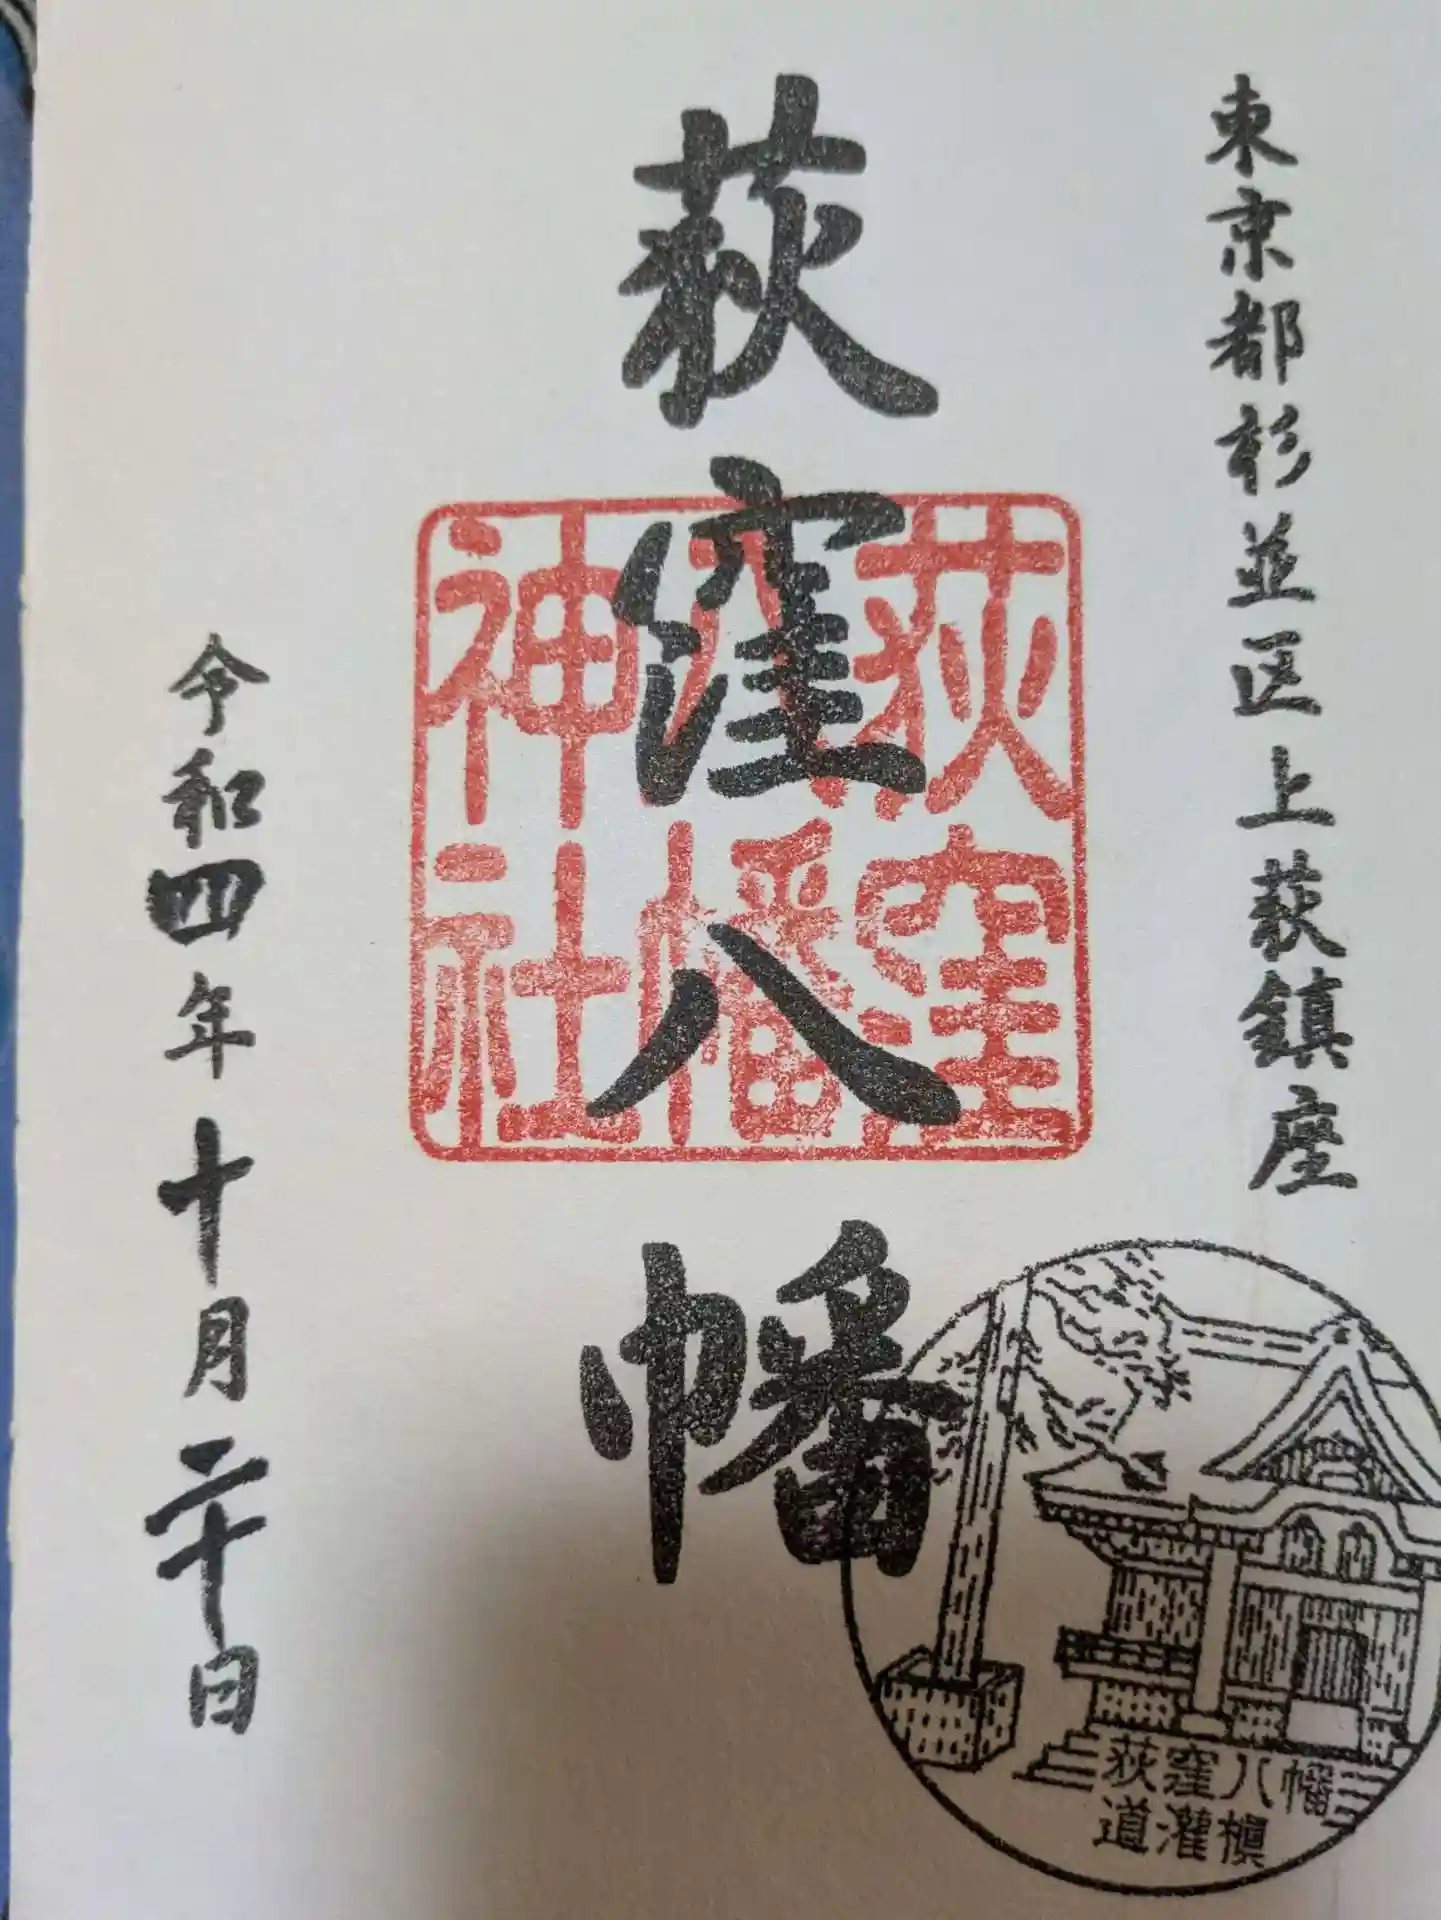 東京都杉並区上荻鎮座
荻窪八幡
荻窪
八幡
神社
令和四年十月二十日
荻窪八幡
道灌槇